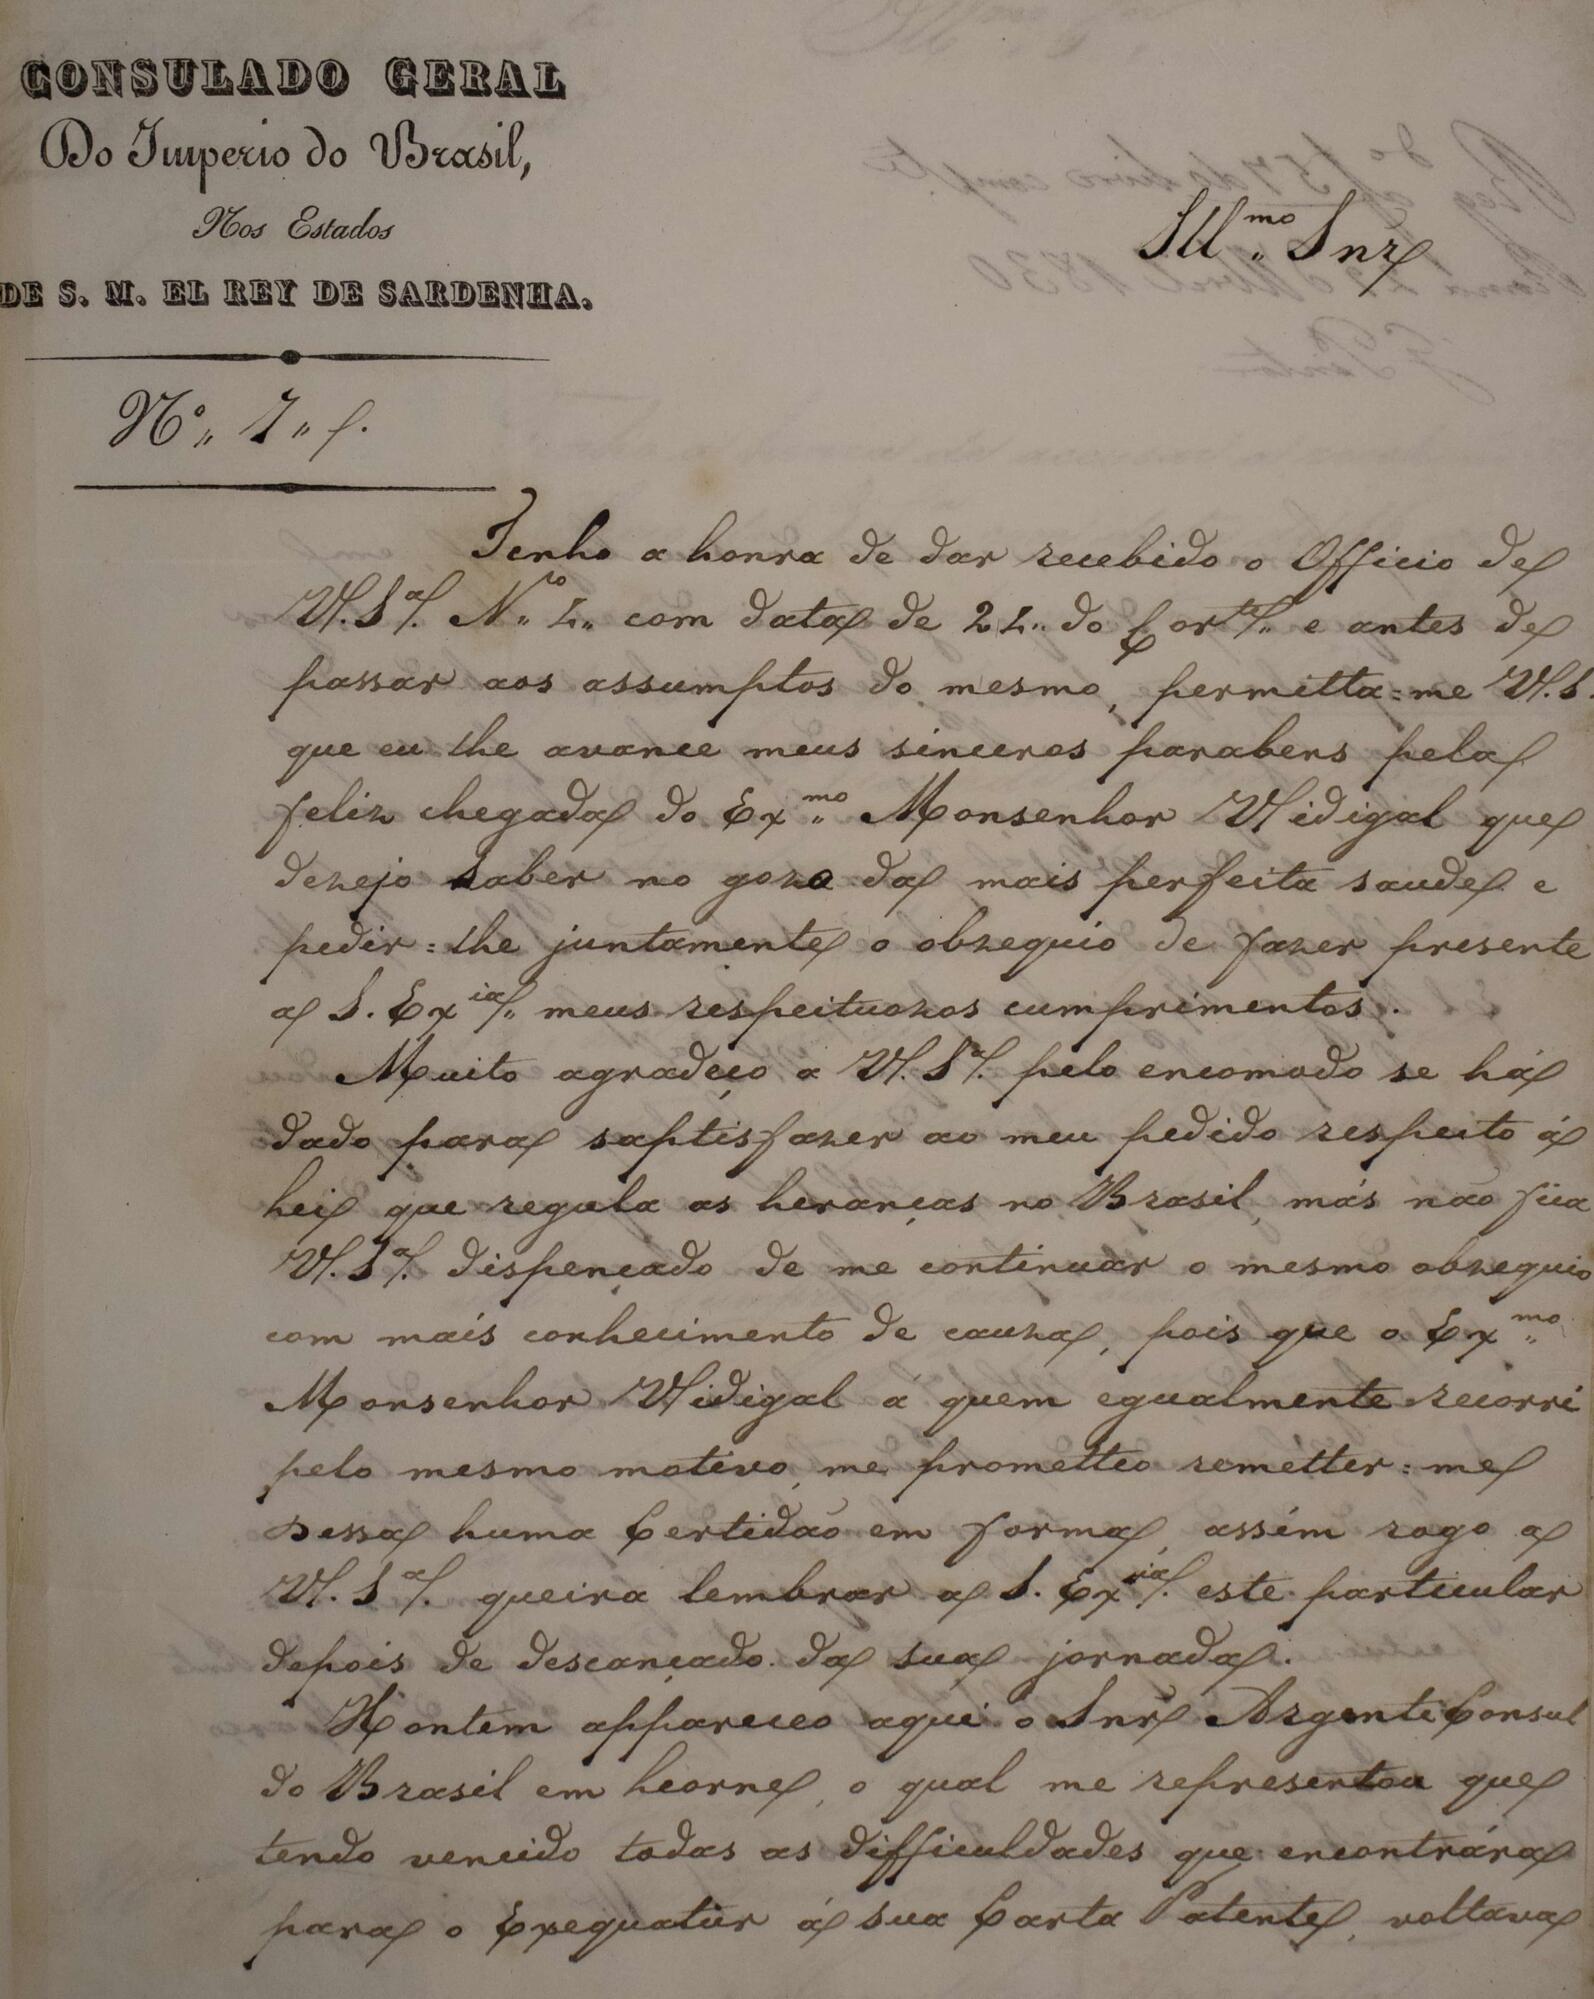 CONSULADO GERAL
Do Imperio do Brasil,
Nos Estados
DE S. M. EL REY DE SARDENHA.
Ill.mo Snr
N.o 1
Tenho a honra de dar recebido o Officio de
V.S.a N.o 2 com data de 22 do Cor.te e antes de
passar aos assumptos do mesmo, permitta=me V.S.
que eu lhe avance meus sinceros parabens pela
feliz chegada do Ex.mo Monsenhor Vidigal que
dezejo saber no gozo da mais perfeita saude e
pedir=lhe juntamente o obzequio de fazer presente
a S. Ex.ia meus respeituozos cumprimentos.
Muito agradeço a V.S.a pelo encomodo se há
dado para saptisfazer ao meu pedido respeito á
Lei que regula as heranças no Brasil, más não fica
V.S.a dispençado de me continuar o mesmo obzequio
com mais conhecimento de cauza, pois que o Ex.mo
Monsenhor Vidigal á quem egualmente recorri
pelo mesmo motivo, me prometteo remetter=me
dessa huma Certidão em forma, assim rogo a
V.S.a queira lembrar a S. Ex.ria este particular
depois de descançado da sua jornada.
Hontem appareceo aqui o Snr Argenti Consul
do Brasil em Leorne, o qual me representou que
tendo vencido todas as difficuldades que encontrára
para o Exequatur á sua Carta Patente, voltava